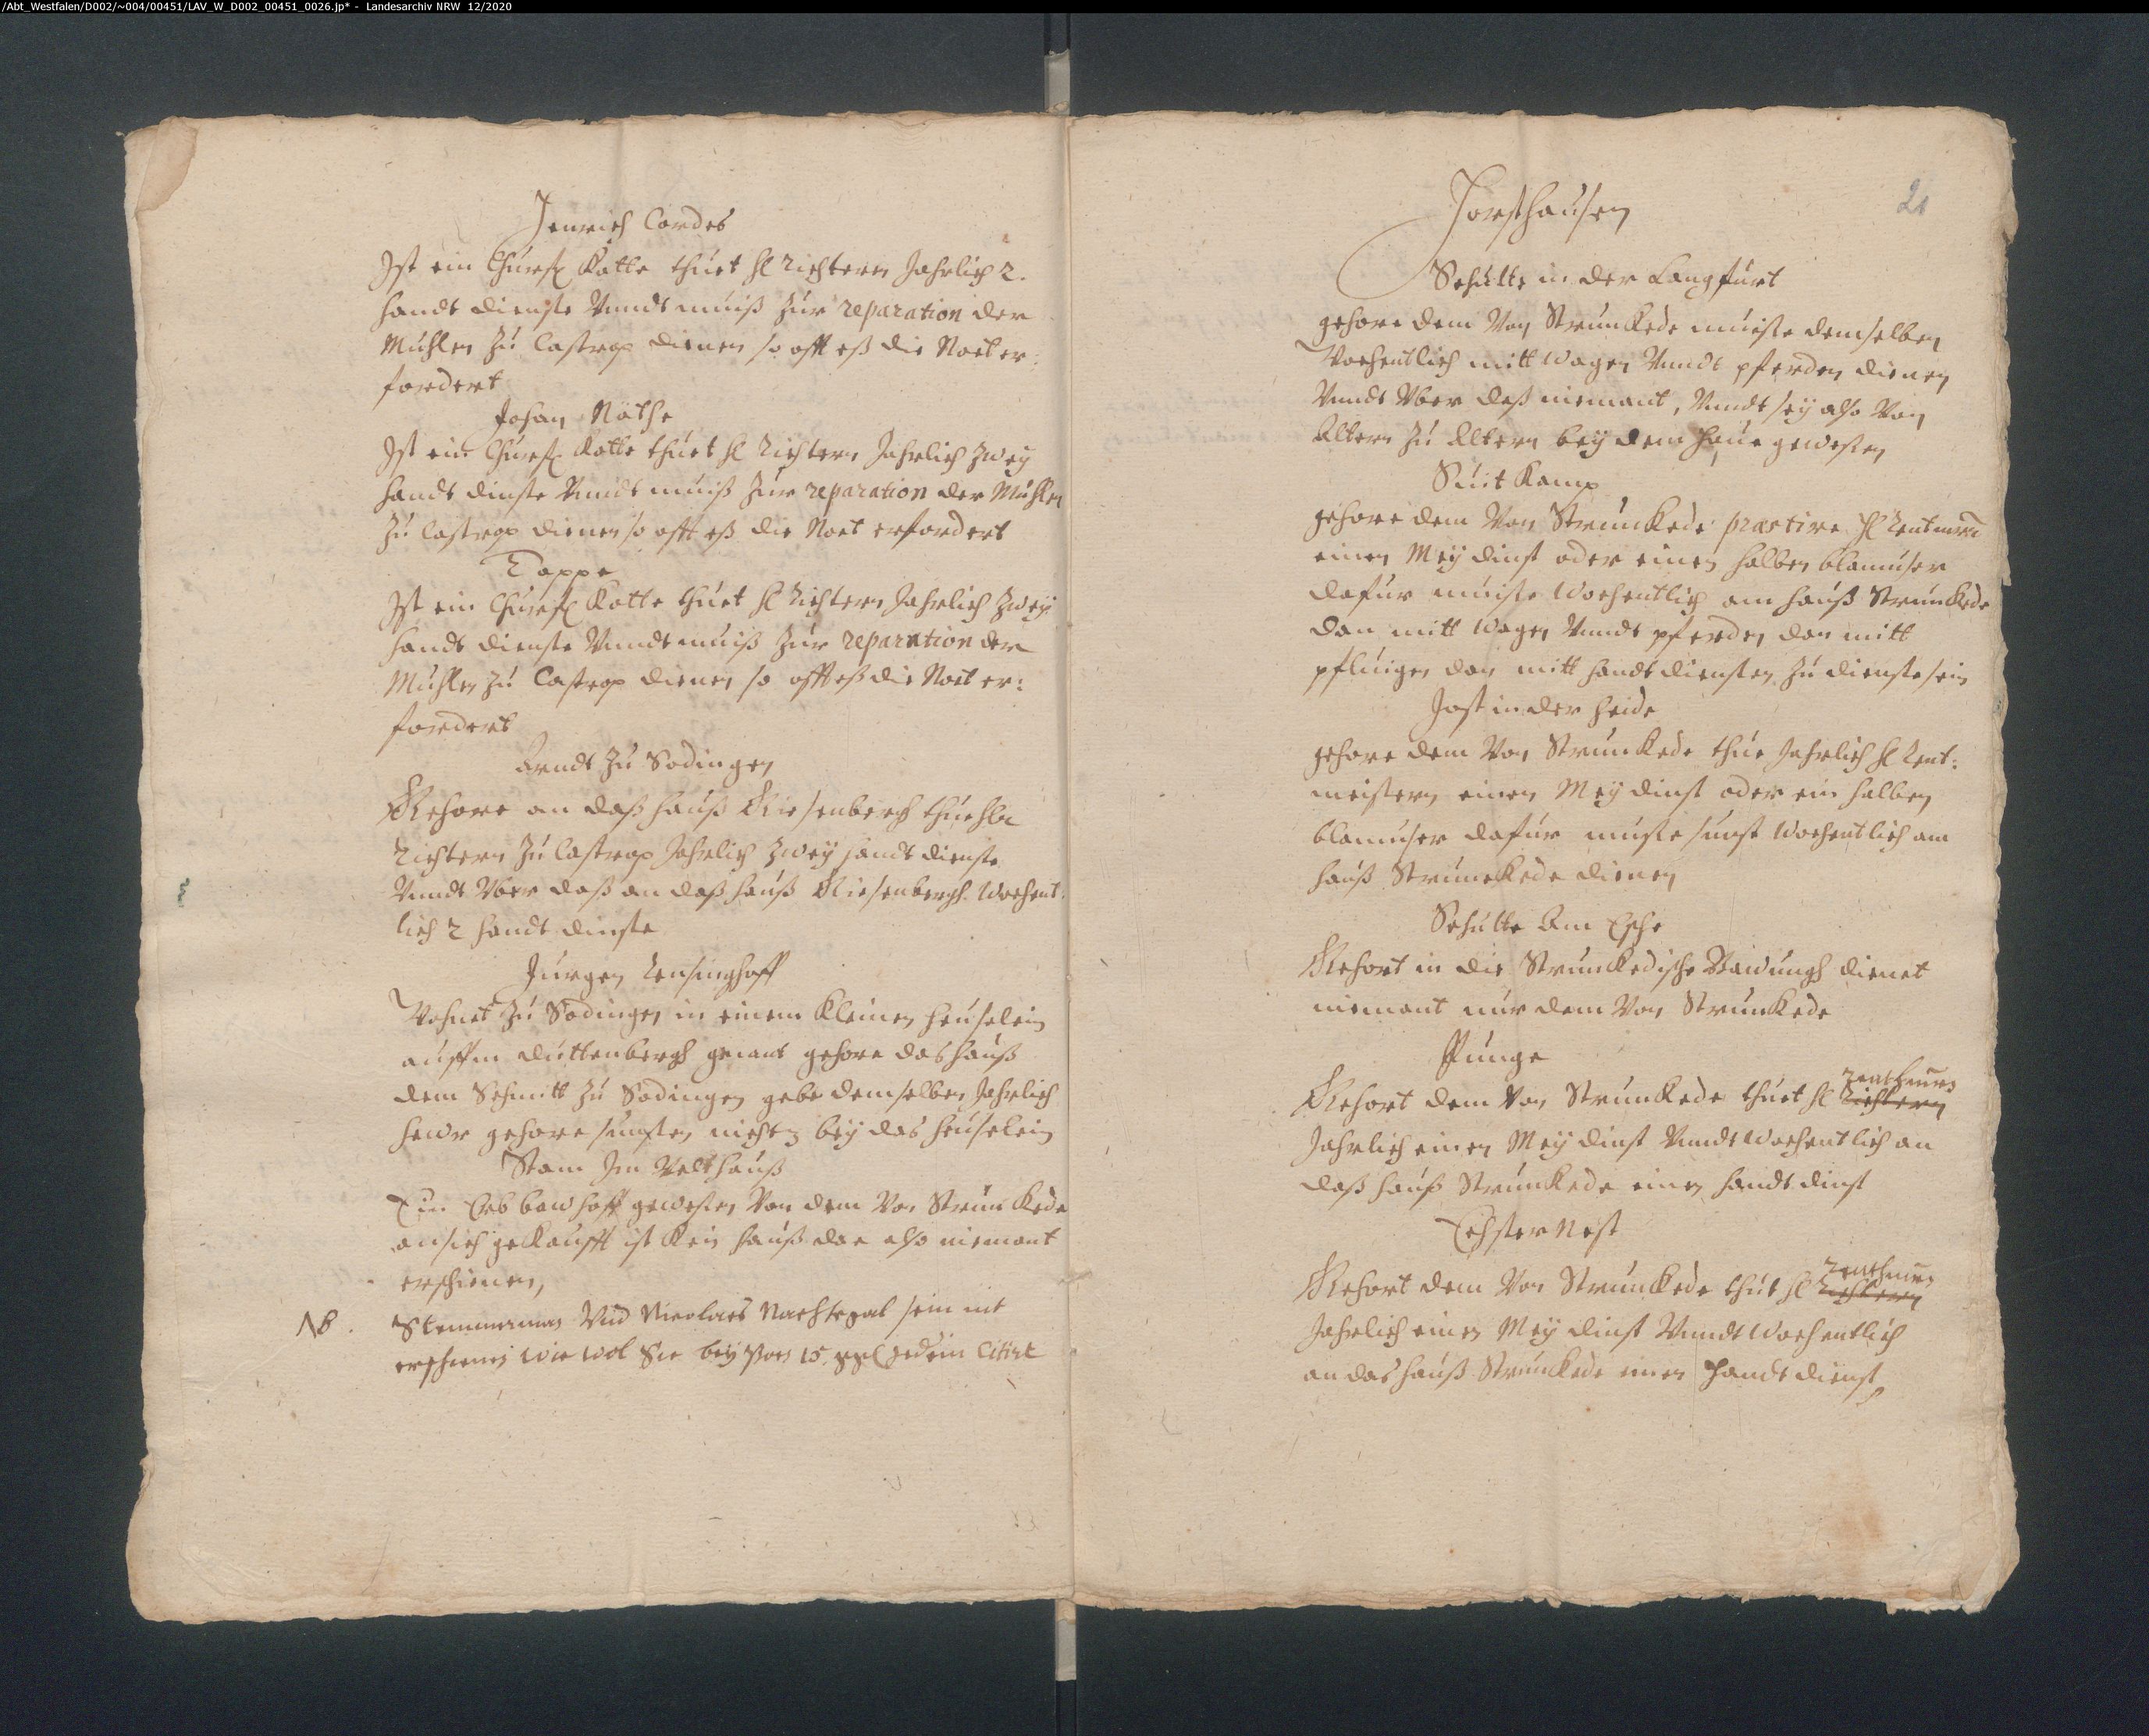 /Abt_Westfalen/D002/~004/00451/LAV_W_D002_00451_0026.jp* - Landesarchiv NRW 12/2020
Henrich Cordes
Ist ein Churfl Kotte thuet hl Richtern Jahrlich 2.
handt dienste Unndt muiß Zur reparation der
Muhlen Zu Castrop dienen so offt eß die Noet er:
fordert
Johan Näthe
Ist ein Churfl Kotte thuet hl Richtern Jahrlich zweÿ
handt dinste Unndt muiß Zur reparation der Muhlen
Zu Castrop dienen so offt eß die Noet erfordert
Toppe
Ist ein Churfl Kotte thuet hl Richtern Jahrlich zweÿ
handt dienste Unndt muiß Zur reparation der
Muhlen Zu Castrop dienen so offt eß die Noet er:
fordert
Arndt Zu Sodingen
Gehore an daß hauß Giesenbergh thue hln
Richtern Zu Castrop Jahrlich zweÿ handt dienste
Unndt Uber daß an daß hauß Giesenbergh. Wochent:
lich 2 handt dinste
Jurgen Rensinghoff
Wohnet Zu Sodingen in einem kleinen heuselein
auffm Duttenbergh genant gehore das hauß
dem Schmitt Zu Sodingen gebe demselben Jahrlich
hewr gehore sunsten nichtz beÿ das heuselein
Stam Im Velthauß
Ein Erb bawhoff gewesen Von dem Von Strunckede
an sich gekaufft ist kein hauß dar also niemant
erschienen,
Nb. Stemmerman Und Nicolaes Nachtegal sein nit
erschienen wie wol Sie beÿ Poen 15 ggl Jedein Citirt
21
Horsthausen
Schulte in der Langfurt
gehore dem Von Strunckede muiste demselben
Wochentlich mitt Wagen Unndt pferden dienen
Unndt Uber daß niemant, Unndt seÿ also Von
Altern Zu Altern beÿ dem haue gewesen
Suit Kamp
gehore dem Von Strunckede praestire hl Rentmr
einen Meÿ dinst oder einen halben blamuser
dafur muiste Wochentlich am hauß Strunckede
dan mitt Wagen Unndt pferden dan mitt
pfluigen dan mitt handtdiensten Zu dienste sein
Jost in der Heide
gehore dem Von Strunckede thue Jahrlich hl Rent:
meistern einen Meÿ dinst oder ein halben
blamuser dafur muste sunst Wochentlich am
hauß Strunckede dienen
Schulte Am Esche
Gehort in die Strunckedische Bawungh dienet
niemant nur dem Von Strunckede
Punge
Rentheuren
Gehort dem Von Strunckede thuet hl Richtern
Jahrlich einen Meÿ dinst Unndt Wochentlich an
daß hauß Strunckede einen handt dinst
Echster Nest
Gehort dem Von Strunckede thut hl Richtern
Jahrlich einen Meÿ dinst Unndt Wochentlich
an das hauß Strunckede einen handt dienst